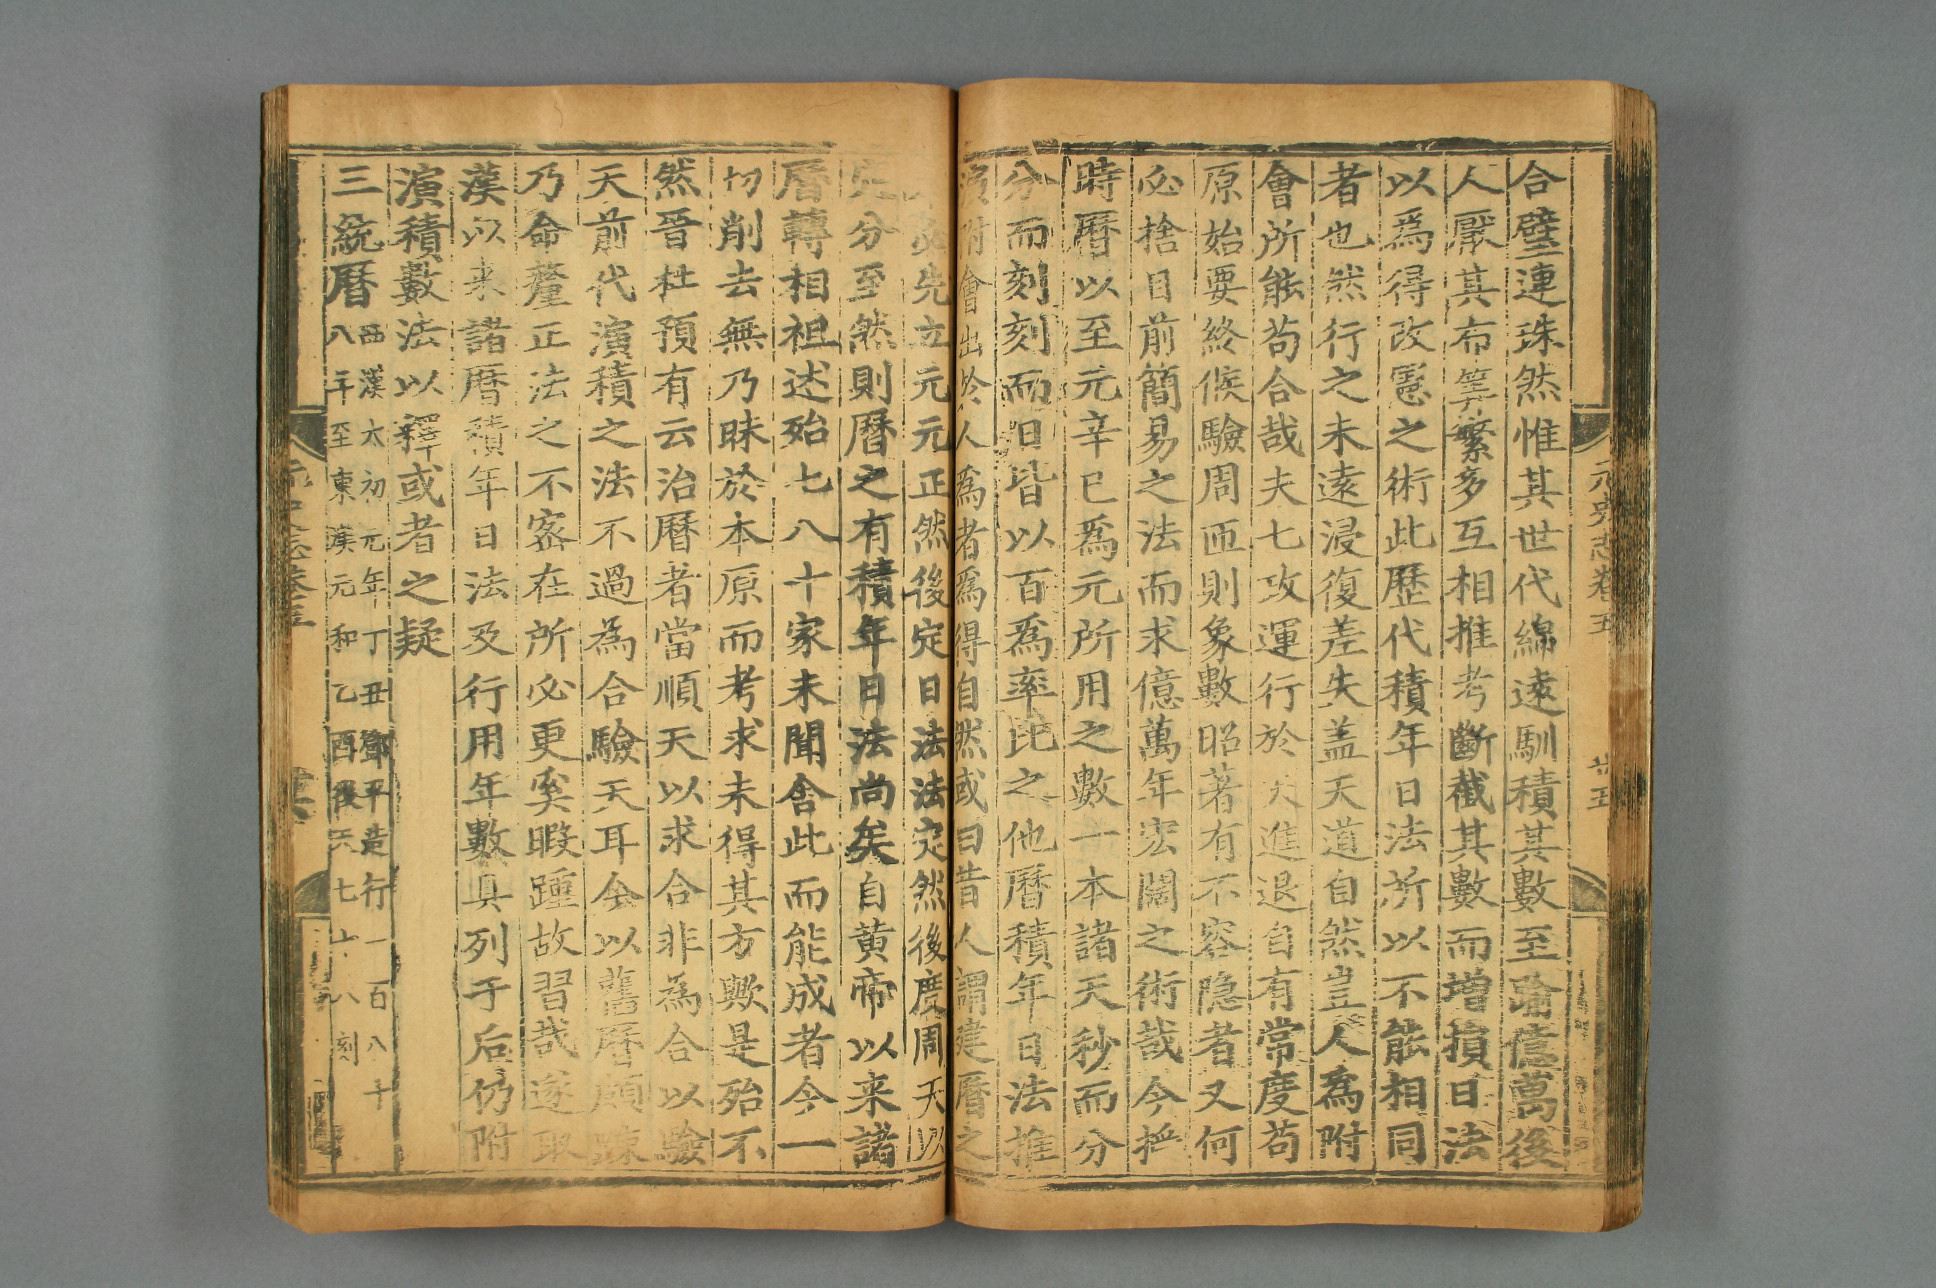 元史志卷五
廿五
合璧連珠然惟其世代綿遠馴積其數至踰億萬後
人厭其布筭繁多互相推考斷截其數而增損日法
以爲得改憲之術此歷代積年日法所以不能相同
者也然行之未遠浸復差失盖天道自然豈人爲附
會所能苟合哉夫七政運行於天進退自有常度苟
原始要終候驗周匝則象數昭著有不容隐者又何
必捨目前簡易之法而求億萬年宏闊之術哉今授
時曆以至元辛巳爲元所用之數一本諸天秒而分
分而刻刻而日皆以百爲率比之他曆積年日法推
演附會出於人爲者爲得自然或曰昔人謂建曆之
先立元元正然後定日法法定然後度周天以
定分至然則曆之有積年日法尚矣自黄帝以来諸
曆轉相祖述殆七八十家未聞舍此而能成者今一
切削去無乃昧於本原而考求未得其方歟是殆不
然晋杜預有云治曆者當順天以求合非為合以驗
天前代演積之法不過為合驗天耳今以舊曆頗踈
乃命釐正法之不宻在所必更奚暇踵故習哉遂取
漢以来諸曆積年日法及行用年數具列于后仍附
演積數法以釋或者之疑
三統曆
西漢太初元年丁丑鄧平造行一百八十
八年至東漢元和乙酉後天七十八刻
元史志卷五